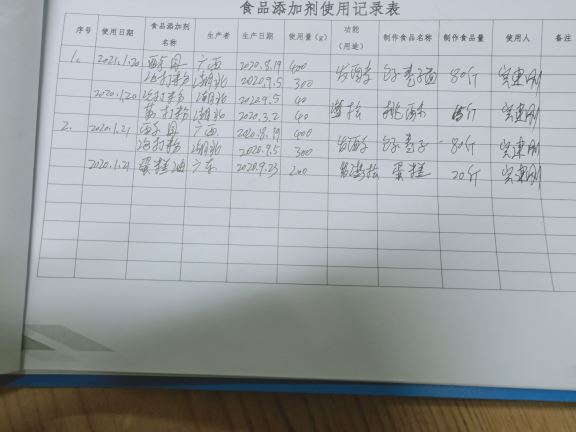 食品添加剂使用记录表
序号 使用日期 食品添加剂名称 生产者 生产日期 使用量(g) 功能(用途) 制作食品名称 制作食品量 使用人 备注
1. 2021.1.20 酵母 广西 2020.8.19 400
泡打粉 湖北 2020.9.5 300 发酵 80斤
2020.1.20 泡打粉 湖北 2020.9.5 40
打粉 湖北 2020.3.2 40 桃酥
2. 2020.1.21 酵母 广西 2020.8.19 400
泡打粉 湖北 2020.9.5 300 发酵 80斤
2020.1.21 蛋糕油 广东 2020.9.23 200 蛋糕 20斤